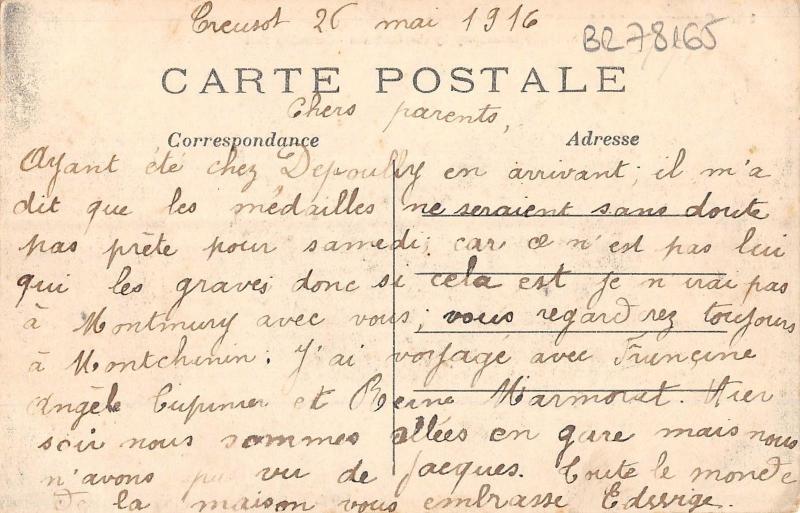 Creusot 26 mai 1916
BR78165
CARTE POSTALE
Chers parents,
Correspondance
Adresse
Ayant été chez Depoully en arrivant; il m'a
dit que les médailles ne seraient sans doute
pas prête pour samedi; car ce n'est pas lui
qui les graves donc si cela est je n'irai pas
à Montmury avec vous; vous regardrez toujours
à Montchinin. J'ai voyagé avec Françine
Angèle et Reine Marmorat. Hier
soir nous sommes allées en gare mais nous
n'avons pas vu de Jacques. Toute le monde
de la maison vous embrasse Edwige.